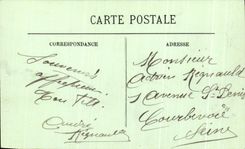 CARTE POSTALE
CORRESPONDANCE
ADRESSE
Souvenir
affectueux
Ton fils
André
Regnault
Monsieur
Regnault
5 Avenue St Denis
Courbevoie
Seine